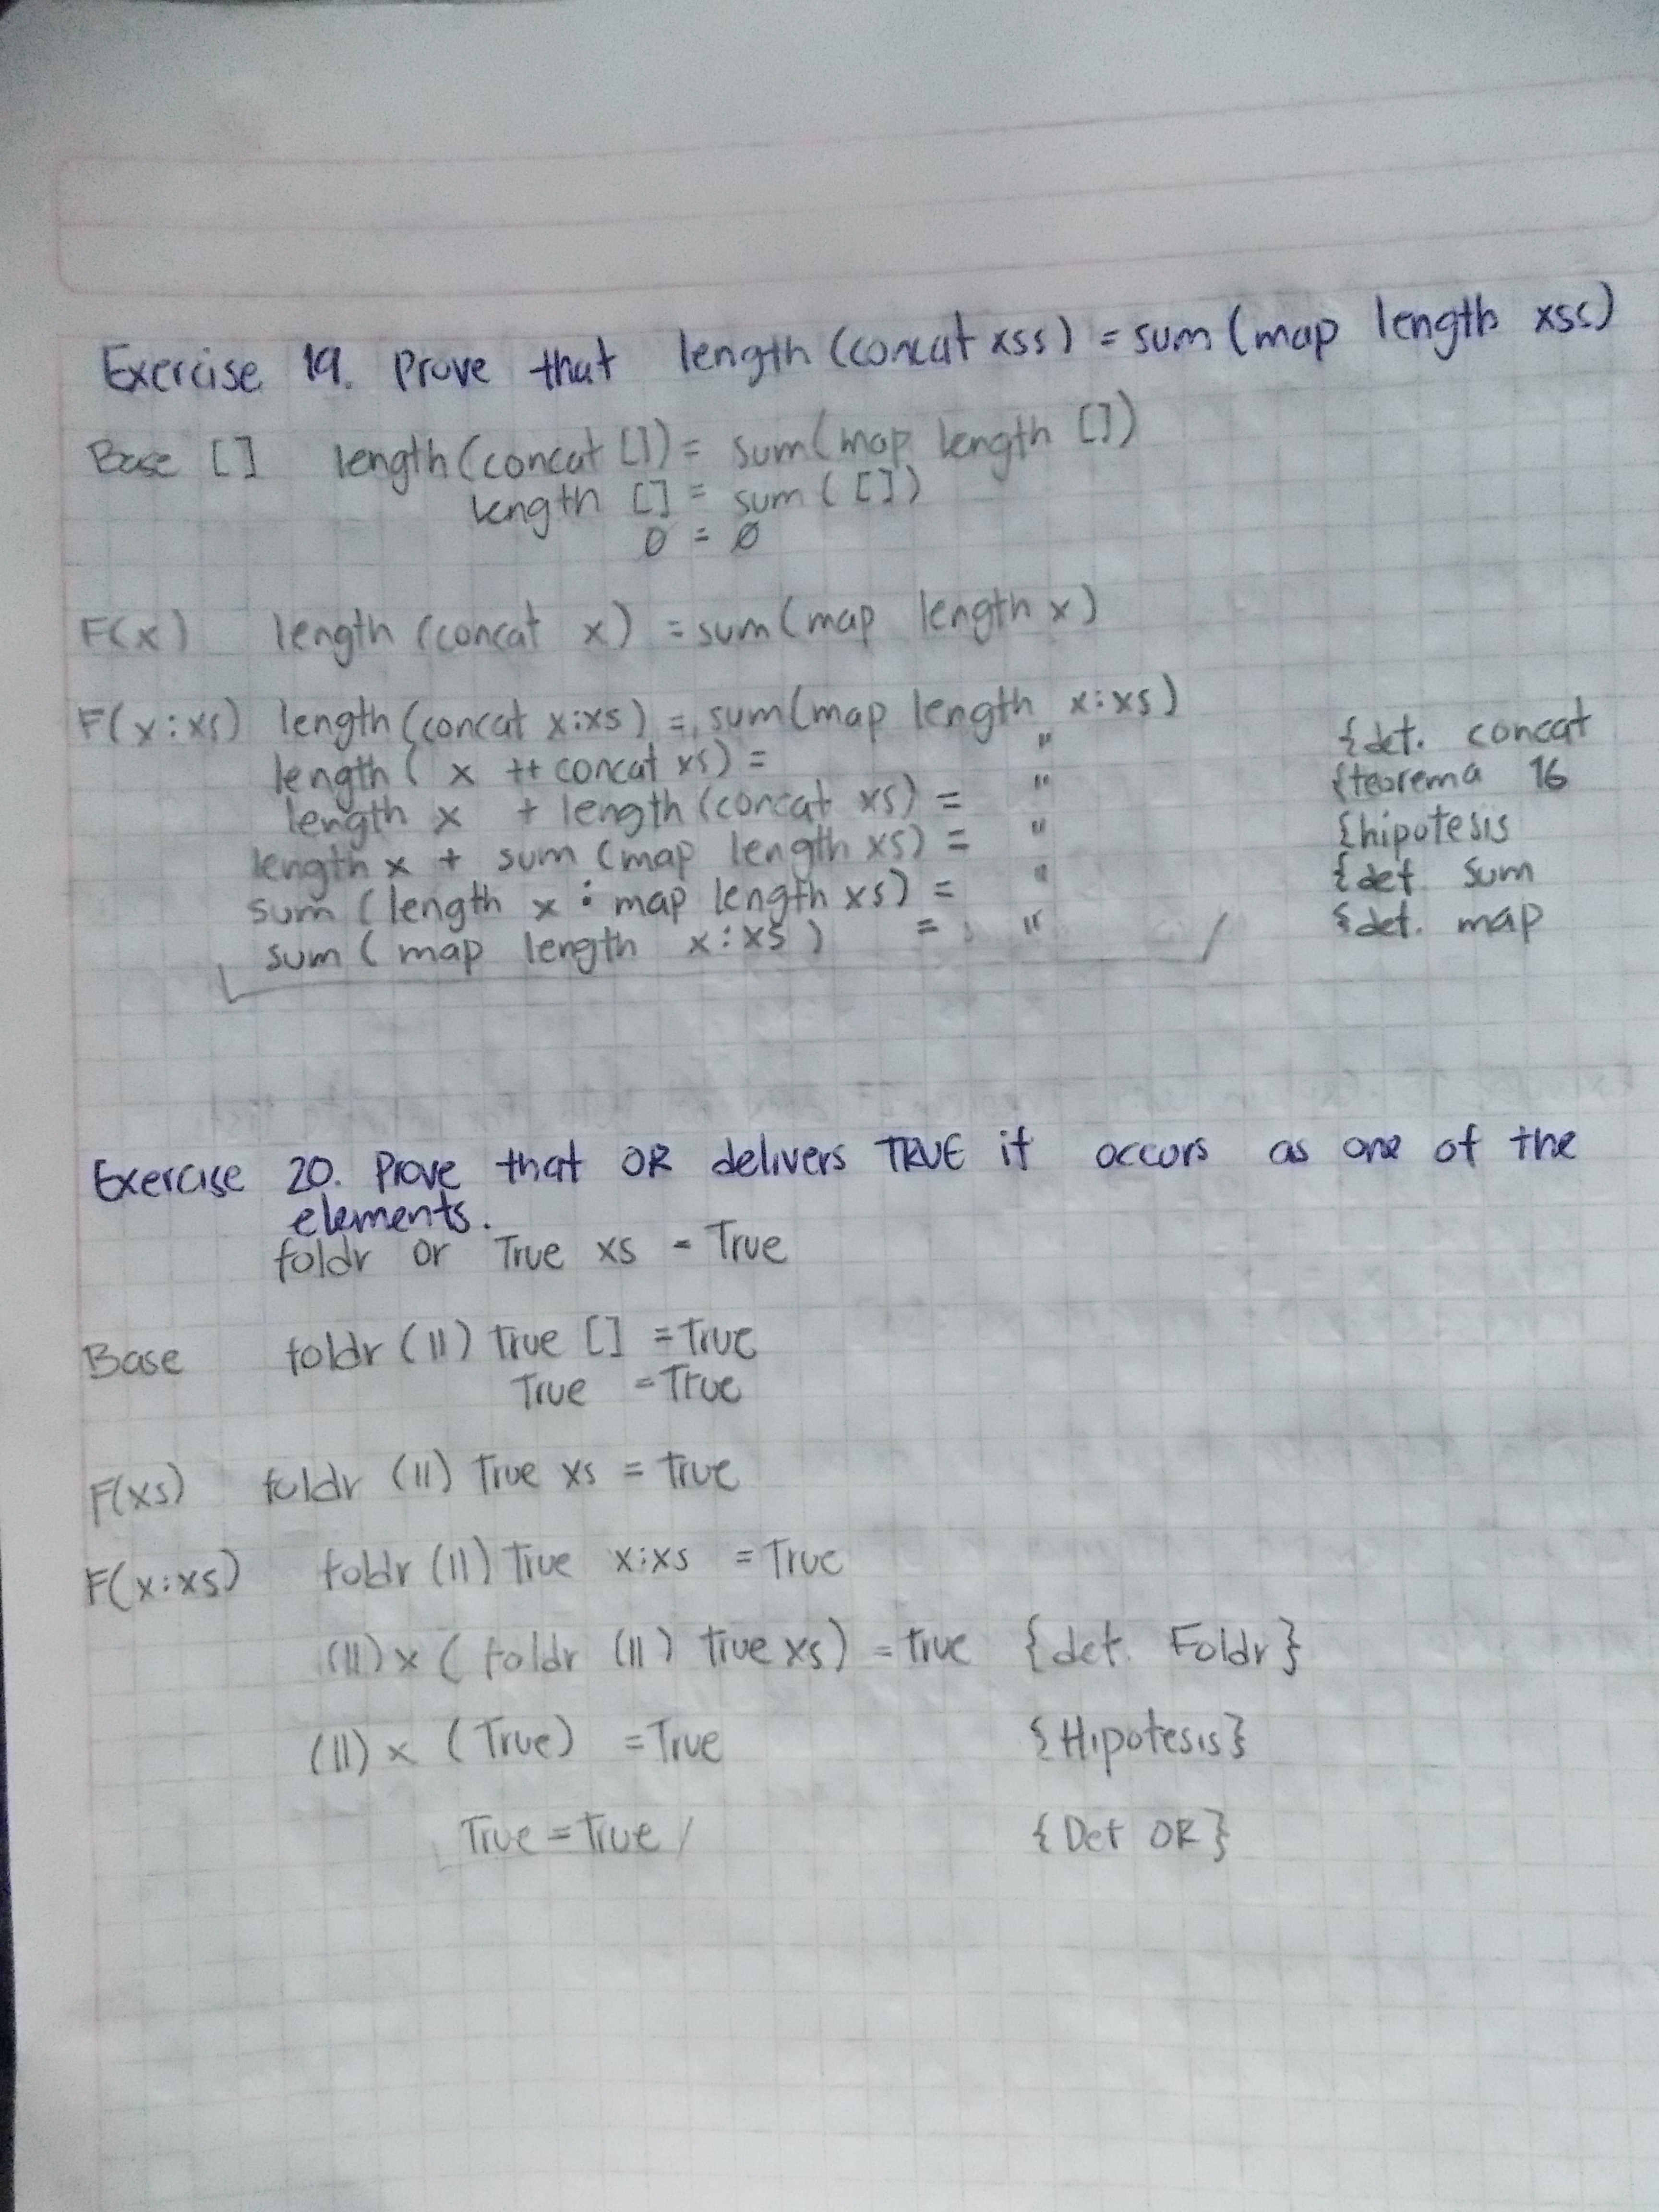 Exercise 19. Prove that length (concat xss) = sum (map length xss)
Base [] length (concat []) = sum (map length [])
length [] = sum ([])
0 = Ø
F(x) length (concat x) = sum (map length x)
F(x:xs) length (concat x:xs) = sum (map length x:xs)
length ( x ++ concat xs) = " {def. concat
length x + length (concat xs) = " {teorema 16
length x + sum (map length xs) = " {hipotesis
sum (length x : map length xs) = " {def sum
sum ( map length x:xs ) = " {def. map
Exercise 20. Prove that OR delivers TRUE if occurs as one of the
elements.
foldr or True xs = True
Base foldr (||) True [] = True
True = True
F(xs) foldr (||) True xs = True
F(x:xs) foldr (||) True x:xs = True
(||) x ( foldr (||) true xs) = true {def. Foldr}
(||) x (True) = True {Hipotesis}
True = True / {Def OR}